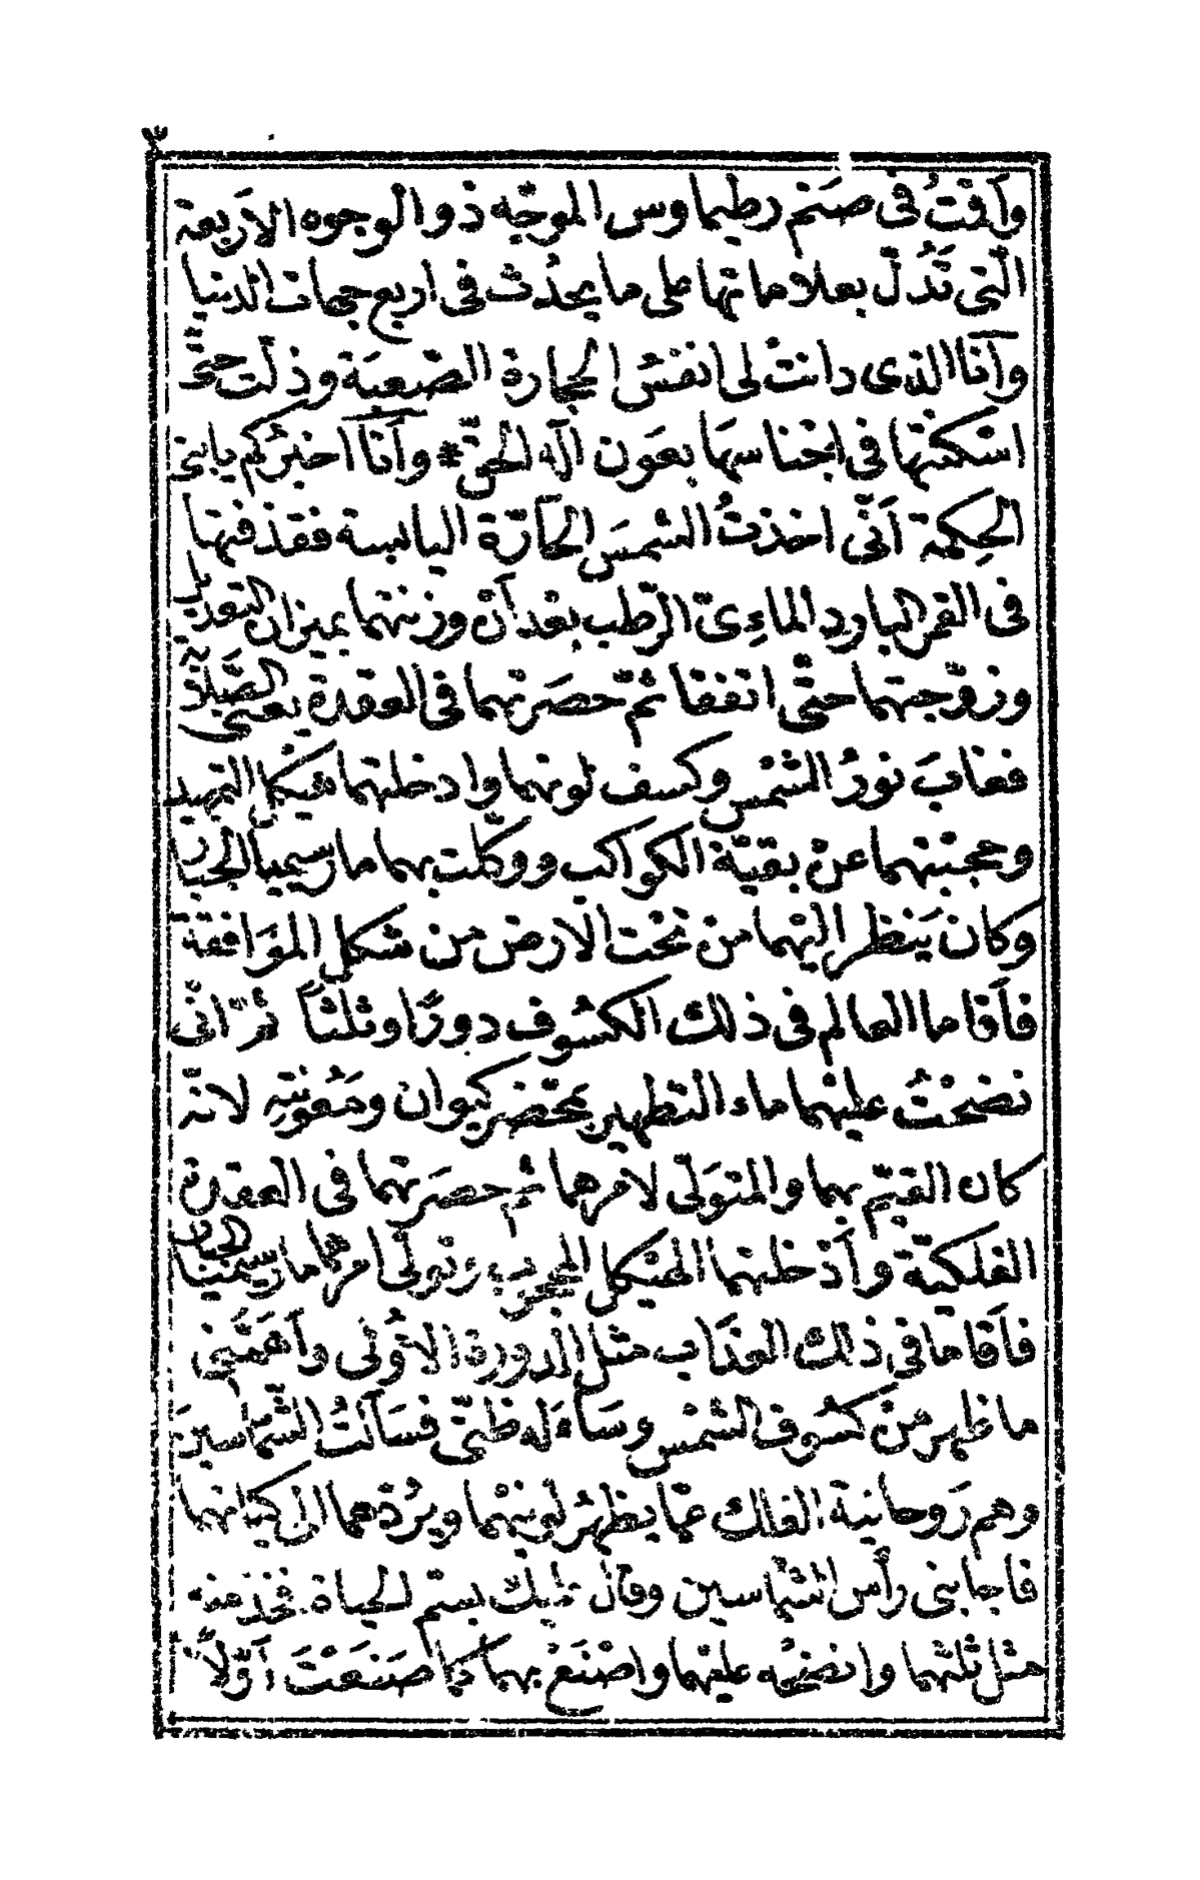 ٣
وأقمتُ فى صَنم رطيماوس الموجّه ذو الوجوه الاَربعة
الّتى تَدُلّ بعلاماتها على ما يحدُث فى اربع جهات الدنيا
وآنا الذى دانتْ لى انفسُ الحجارة الصّعبَة وذلّت حتّى
اسْكنتها فى اجْناسهَا بعَون الآه الحقّ * وآنا اخبرُكم يابنى
الحِكمة اَنّى اخذتُ الشمسَ الحَارّة اليابسة فقذفتها
فى القمر الباردِ الماءِىّ الرّطب بعْد اَنْ وزنتهما بميزان التعديل
وزوّجتهما حتّى اتفقا ثمّ حصَرتهما فى العقدة يعنى الصَّلاَية
فغابَ نورُ الشمْس وكسف لونهما وادخلتهما هيكل التمهيد
وحجبْتهما عنْ بقيّة الكواكب ووكّلت بهما مارسيميا الجبّار
وكان يَنظر اليْهما من تحْت الاَرض من شكل الموَافقة
فاَقاما العالم فى ذلك الكسُوف دورًا وثلثاً ثمّ انّى
نضحْتُ عليهْما ماء التّطهير بمحْضر كيوان ومَعُونتهِ لانّه
كان القيّم بهما والمتوَلّى لامرهما ثم حصَرتهما فى العقدة
الفلكيّة واَدْخلتهما الهيْكل وتولّى امرهما مارسميْنا الجبار
فاَقامَا فى ذلك العذَاب مثل الدورة الاُولى واَهَمَّنى
ما ظهر منْ كسُوف الشمْس وسَاءَ له ظنّى فسَالتُ الشمّاسينَ
وهم رَوحانية الفلك عمّا يظهرُ لونهْما ويرُدّهما الى كيانهما
فاجابنى رأس الشمّاسين وقال عليك بسمّ الحياة فخذ منه
مثل ثلثهْما وانضحْه عليهْما واصْنعْ بهما كما صَنعَتَ اَوّلاً